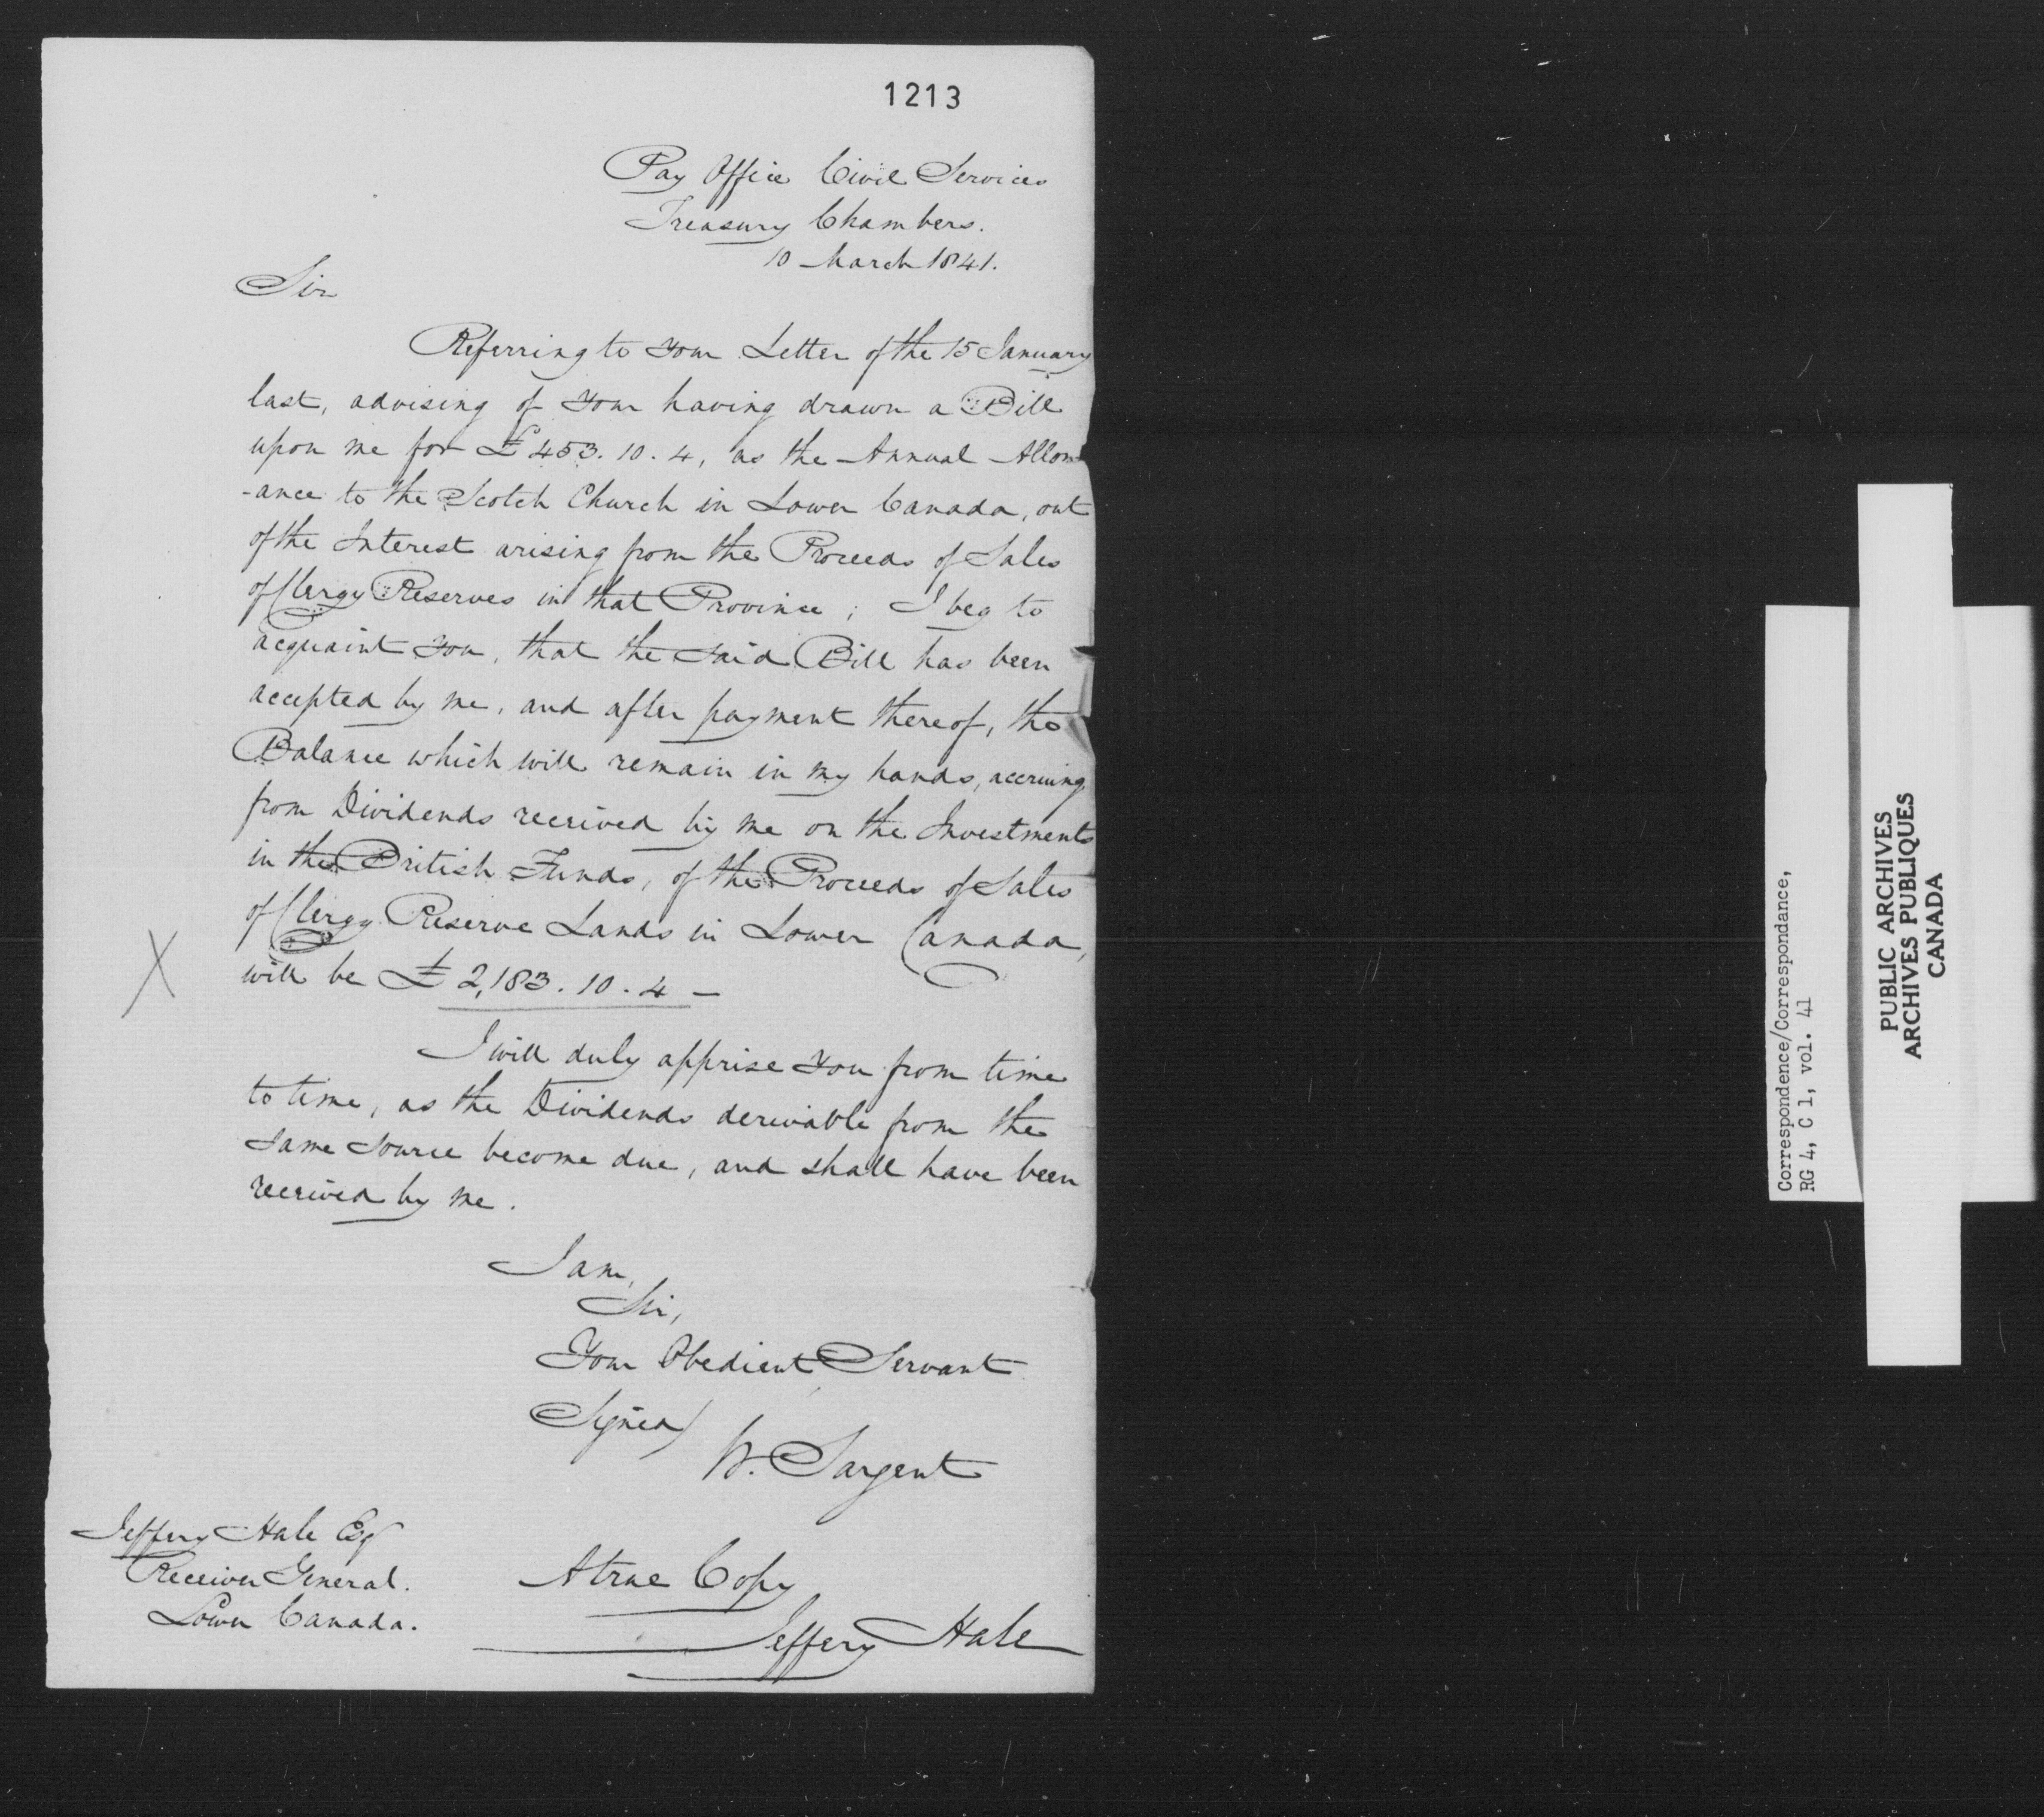 1213
Pay Office Civil Services
Treasury Chambers.
10 March 1841.
Sir
Referring to your Letter of the 15 January
last, advising of your having drawn a Bill
upon me for £453.10.4, as the Annual Allow
-ance to the Scotch Church in Lower Canada, out
of the Interest arising from the Proceeds of Sales
of Clergy Reserves in that Province; I beg to
acquaint you, that the said Bill has been
accepted by me, and after payment thereof, the
Balance which will remain in my hands, accruing
from Dividends received by me on the Investments
in the British Funds, of the Proceeds of Sales
of Clergy Reserve Lands in Lower Canada,
will be £2,183.10.4 —
X
I will duly apprise you from time
to time, as the Dividends derivable from the
same source become due, and shall have been
received by me.
I am,
Sir,
Your Obedient Servant
Signed)
W. Sargent
Jeffery Hale Esq
Receiver General.
Lower Canada.
A true Copy
Jeffery Hale
Correspondence/Correspondance,
RG 4, C 1, vol. 41
PUBLIC ARCHIVES
ARCHIVES PUBLIQUES
CANADA